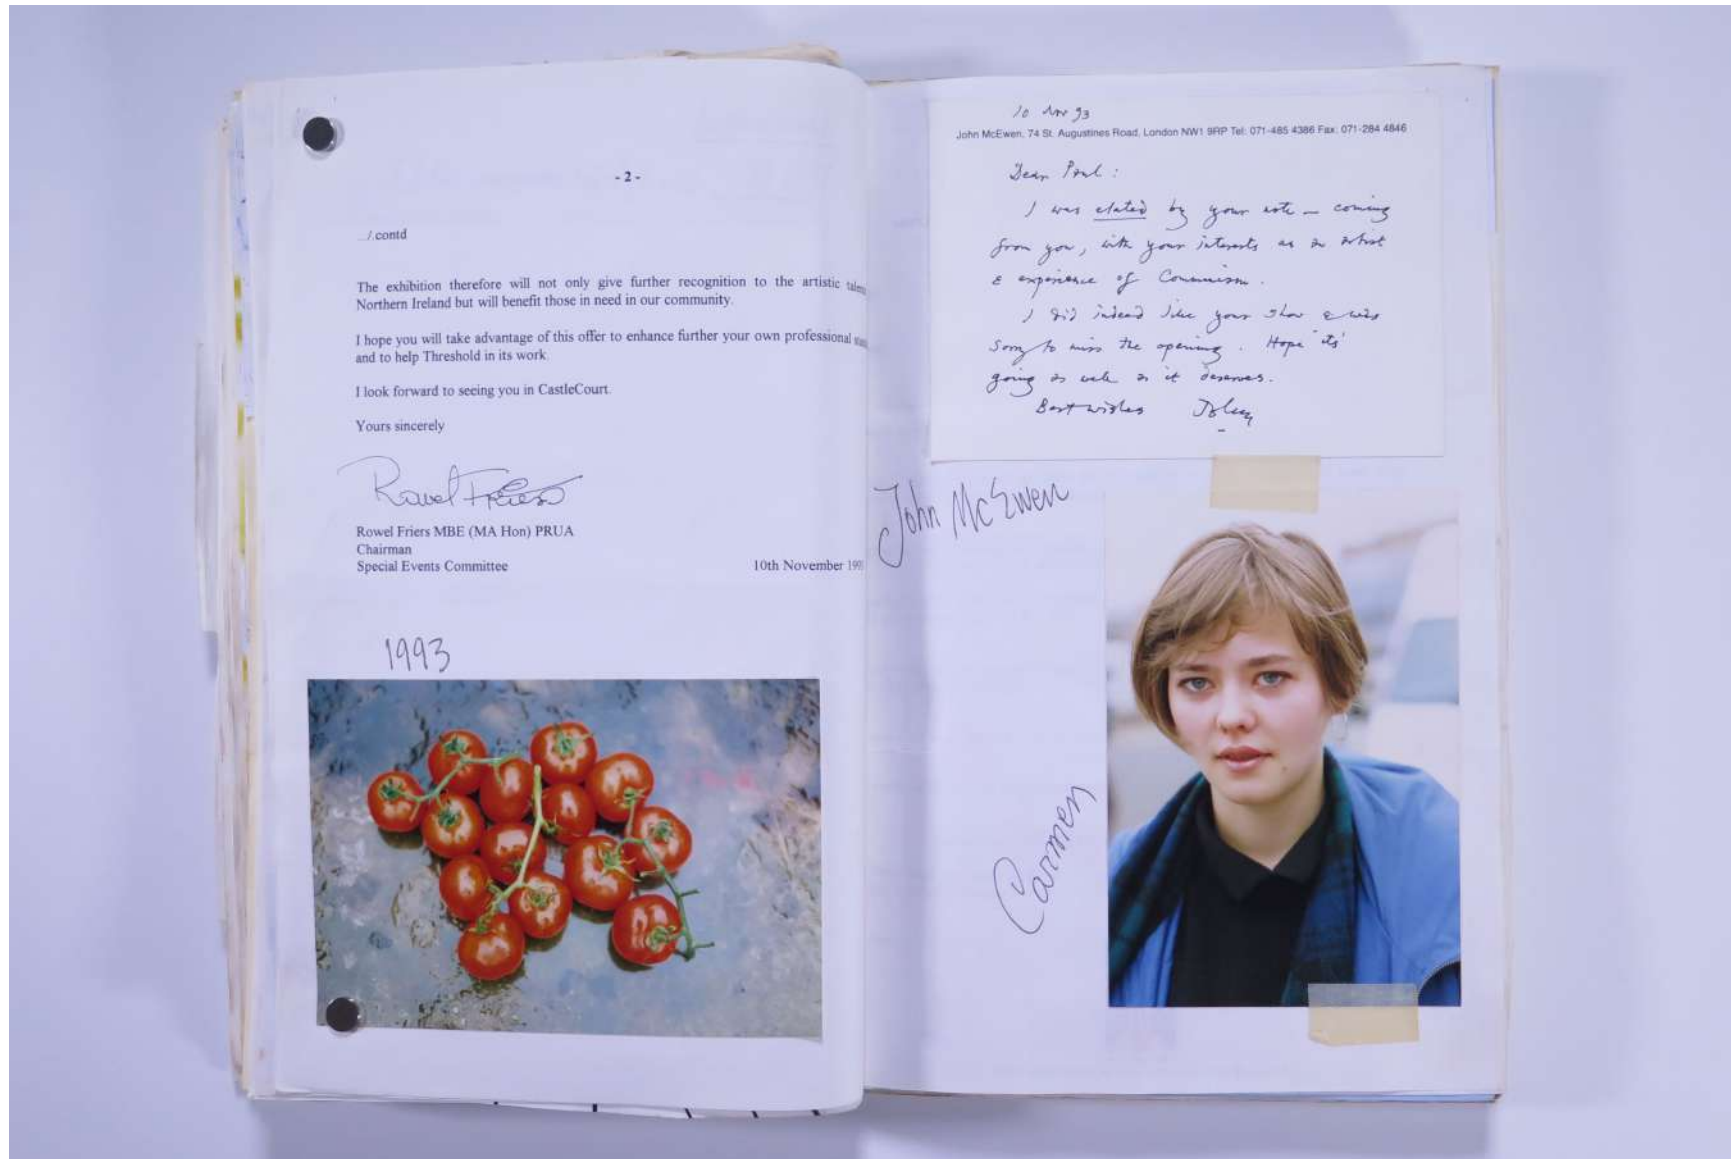 - 2 -
.../.contd
The exhibition therefore will not only give further recognition to the artistic
Northern Ireland but will benefit those in need in our community.
I hope you will take advantage of this offer to enhance further your own professional
and to help Threshold in its work.
I look forward to seeing you in CastleCourt.
Yours sincerely
Rowel Friers
Rowel Friers MBE (MA Hon) PRUA
Chairman
Special Events Committee
10th November 199
1993
10 Nov 93
John McEwen, 74 St. Augustines Road, London NW1 9RP Tel: 071-485 4386 Fax: 071-284 4846
Dear Paul:
I was elated by your note - coming
from you, with your interests as an artist
& experience of Communism.
I did indeed like your show & was
sorry to miss the opening. Hope it's
going as well as it deserves.
Best wishes John
John McEwen
Carmen